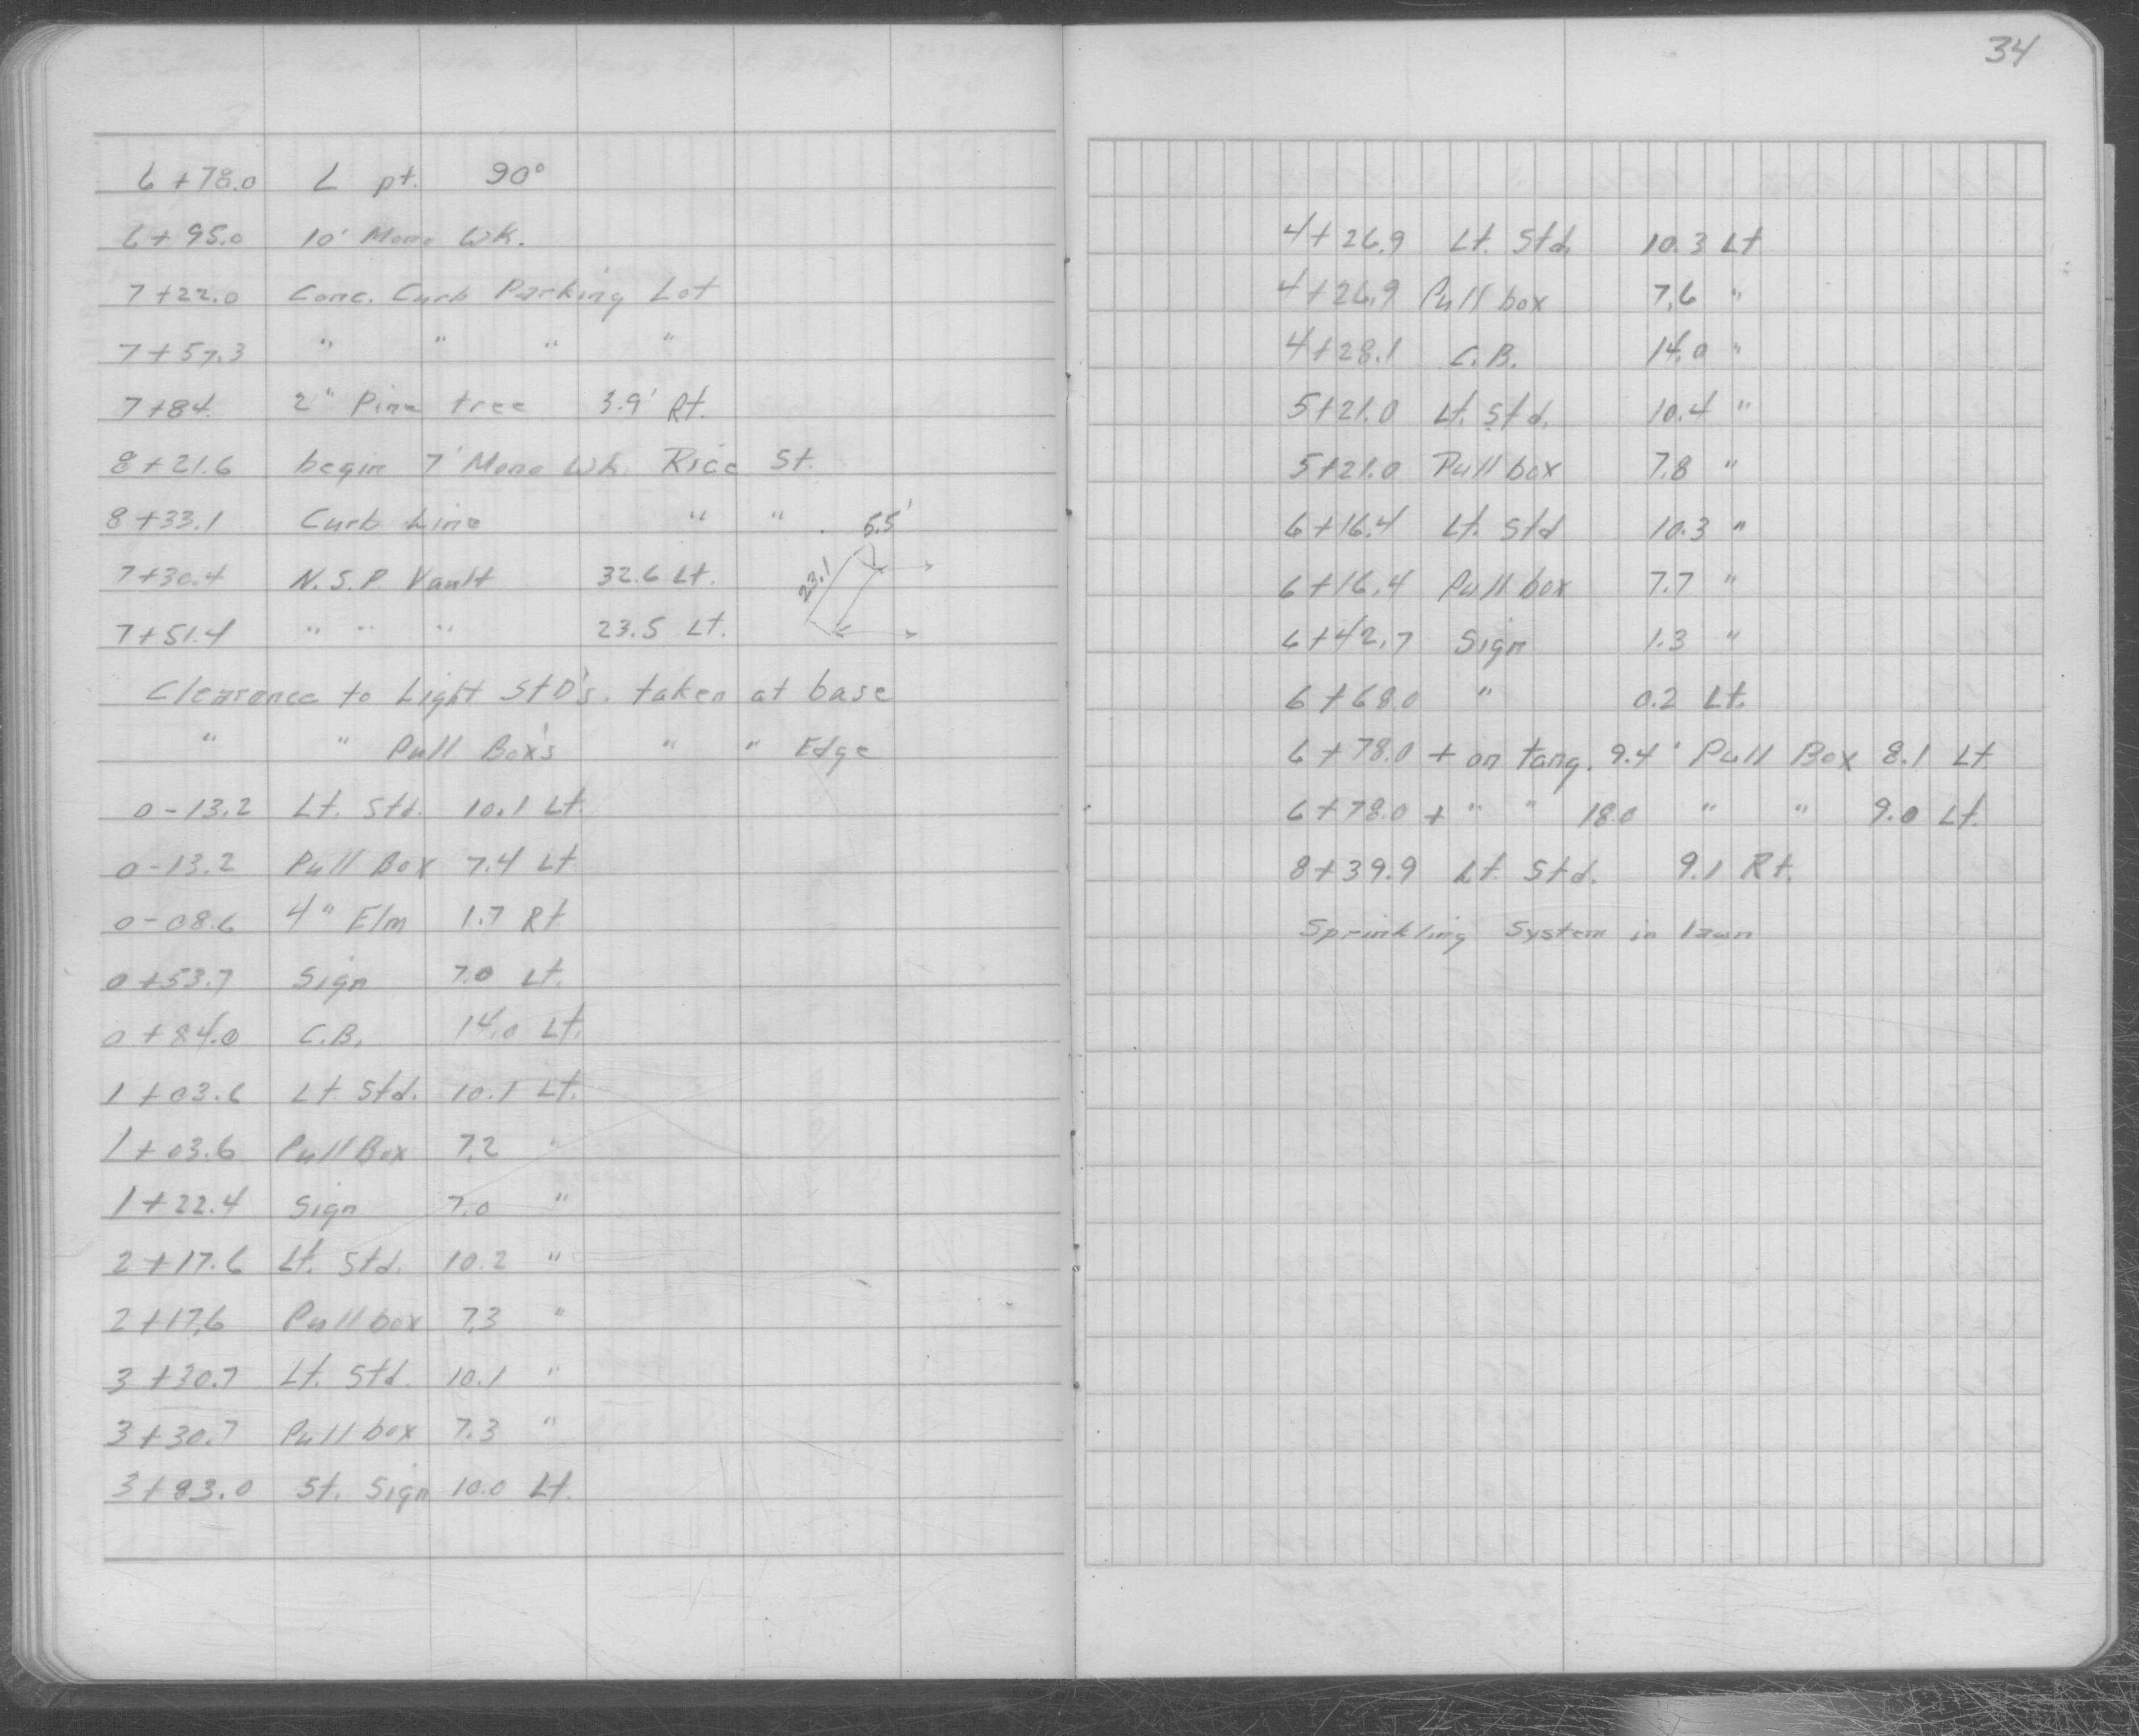 34
6+78.0 L pt. 90°
6+95.0 10' Mono Wk.
7+22.0 Conc. Curb Parking Lot
7+57.3 " " " "
7+84. 2" Pine tree 3.9' Rt.
8+21.6 begin 7' Mono Wk. Rice St.
8+33.1 Curb Line " "
5.5'
7+30.4 N.S.P. Vault 32.6 Lt. 23.1
7+51.4 " " " 23.5 Lt.
Clearance to Light StD's. taken at base
" " Pull Box's " " Edge
0-13.2 Lt. Std. 10.1 Lt.
0-13.2 Pull Box 7.4 Lt
0-08.6 4" Elm 1.7 Rt
0+53.7 Sign 7.0 Lt.
0+84.0 C.B. 14.0 Lt.
1+03.6 Lt. Std. 10.1 Lt.
1+03.6 Pull Box 7.2 "
1+22.4 Sign 7.0 "
2+17.6 Lt. Std. 10.2 "
2+17.6 Pull box 7.3 "
3+30.7 Lt. Std. 10.1 "
3+30.7 Pull box 7.3 "
3+83.0 St. Sign 10.0 Lt.
4+26.9 Lt. Std. 10.3 Lt
4+26.9 Pull box 7.6 "
4+28.1 C.B. 14.0 "
5+21.0 Lt. Std. 10.4 "
5+21.0 Pull box 7.8 "
6+16.4 Lt. Std 10.3 "
6+16.4 Pull box 7.7 "
6+42.7 Sign 1.3 "
6+68.0 " 0.2 Lt.
6+78.0 + on tang. 9.4' Pull Box 8.1 Lt
6+78.0 + " " 18.0 " " 9.0 Lt.
8+39.9 Lt. Std. 9.1 Rt.
Sprinkling System in lawn